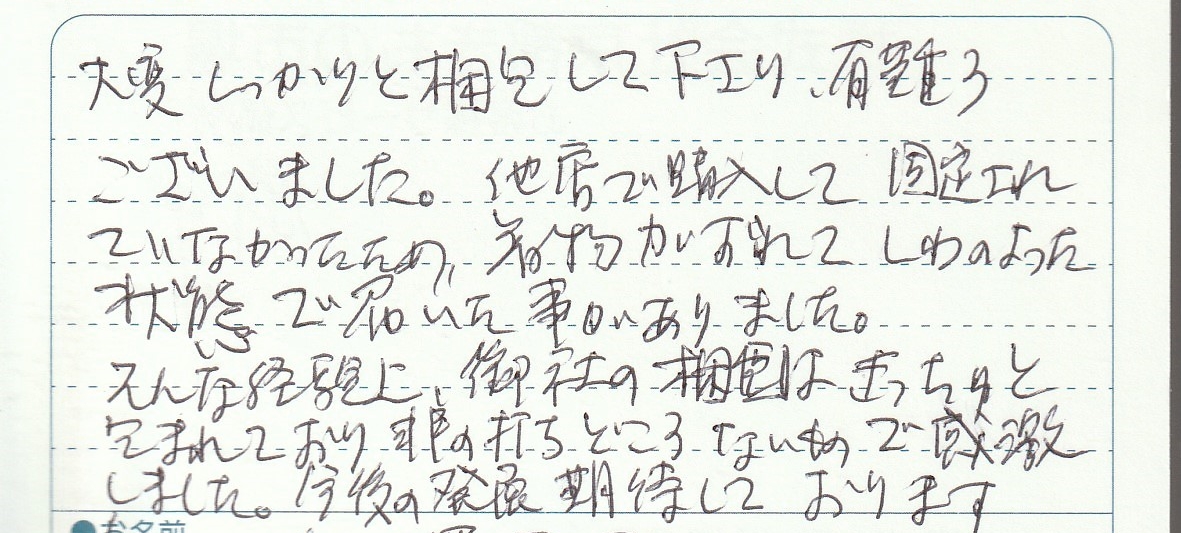 大変しっかりと梱包して下さり、有難う
ございました。他店で購入して固定され
ていなかったため、着物がずれてしわのよった
状態で届いた事がありました。
そんな経験上、御社の梱包はきっちりと
包まれており非の打ちどころないもので感激
しました。今後の発展期待しております
●お名前